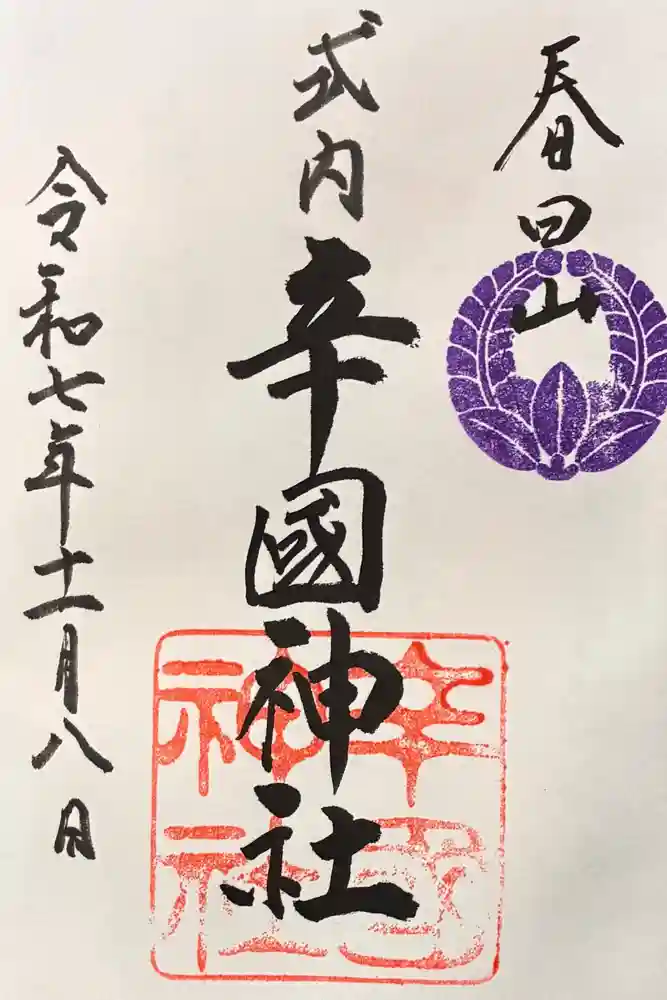 春日山
式内辛國神社
辛國神社
令和七年十一月八日